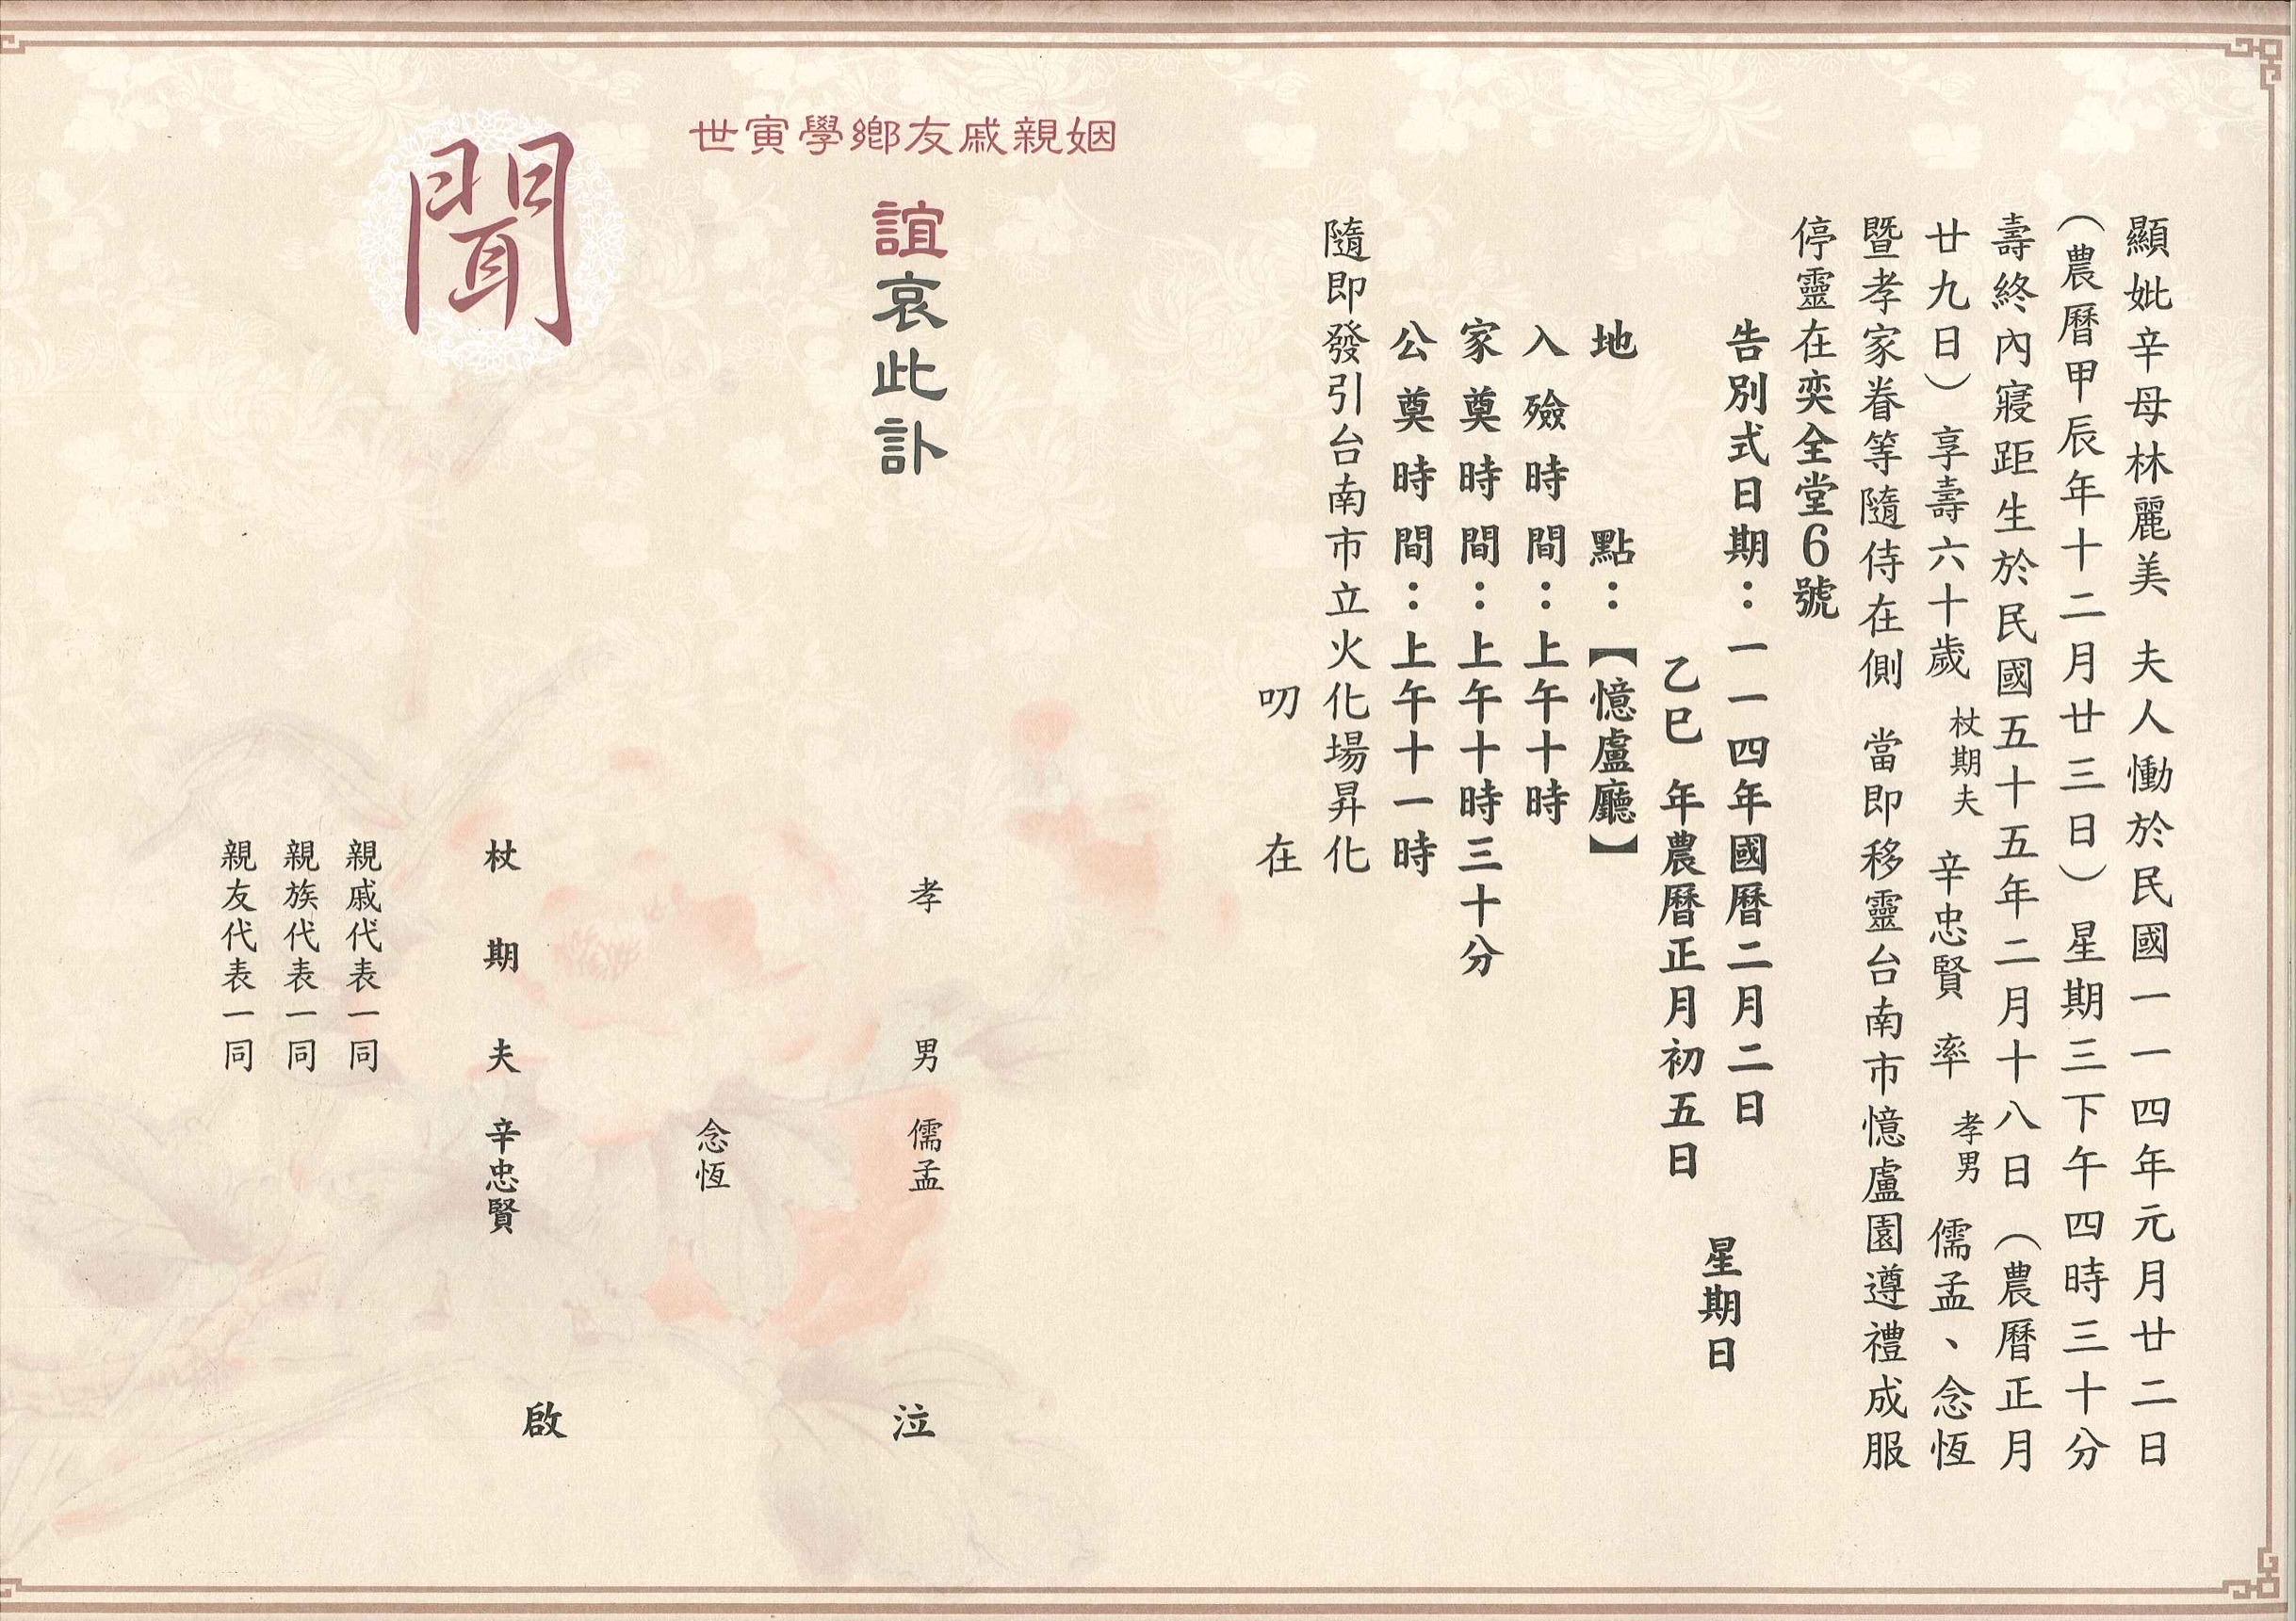 顯妣辛母林麗美 夫人慟於民國一一四年元月廿二日
（農曆甲辰年十二月廿三日）星期三下午四時三十分
壽終內寢距生於民國五十五年二月十八日（農曆正月
廿九日）享壽六十歲 杖期夫 辛忠賢 率 孝男 儒孟、念恆
暨孝家眷等隨侍在側 當即移靈台南市憶盧園遵禮成服
停靈在奕全堂6號
告別式日期：一一四年國曆二月二日
乙巳 年農曆正月初五日
星期日
地點：【憶盧廳】
入殮時間：上午十時
家奠時間：上午十時三十分
公奠時間：上午十一時
隨即發引台南市立火化場昇化
叨 在
世寅學鄉友戚親姻
誼哀此訃
聞
孝男 儒孟
念恆
泣
杖期夫 辛忠賢
啟
親戚代表一同
親族代表一同
親友代表一同